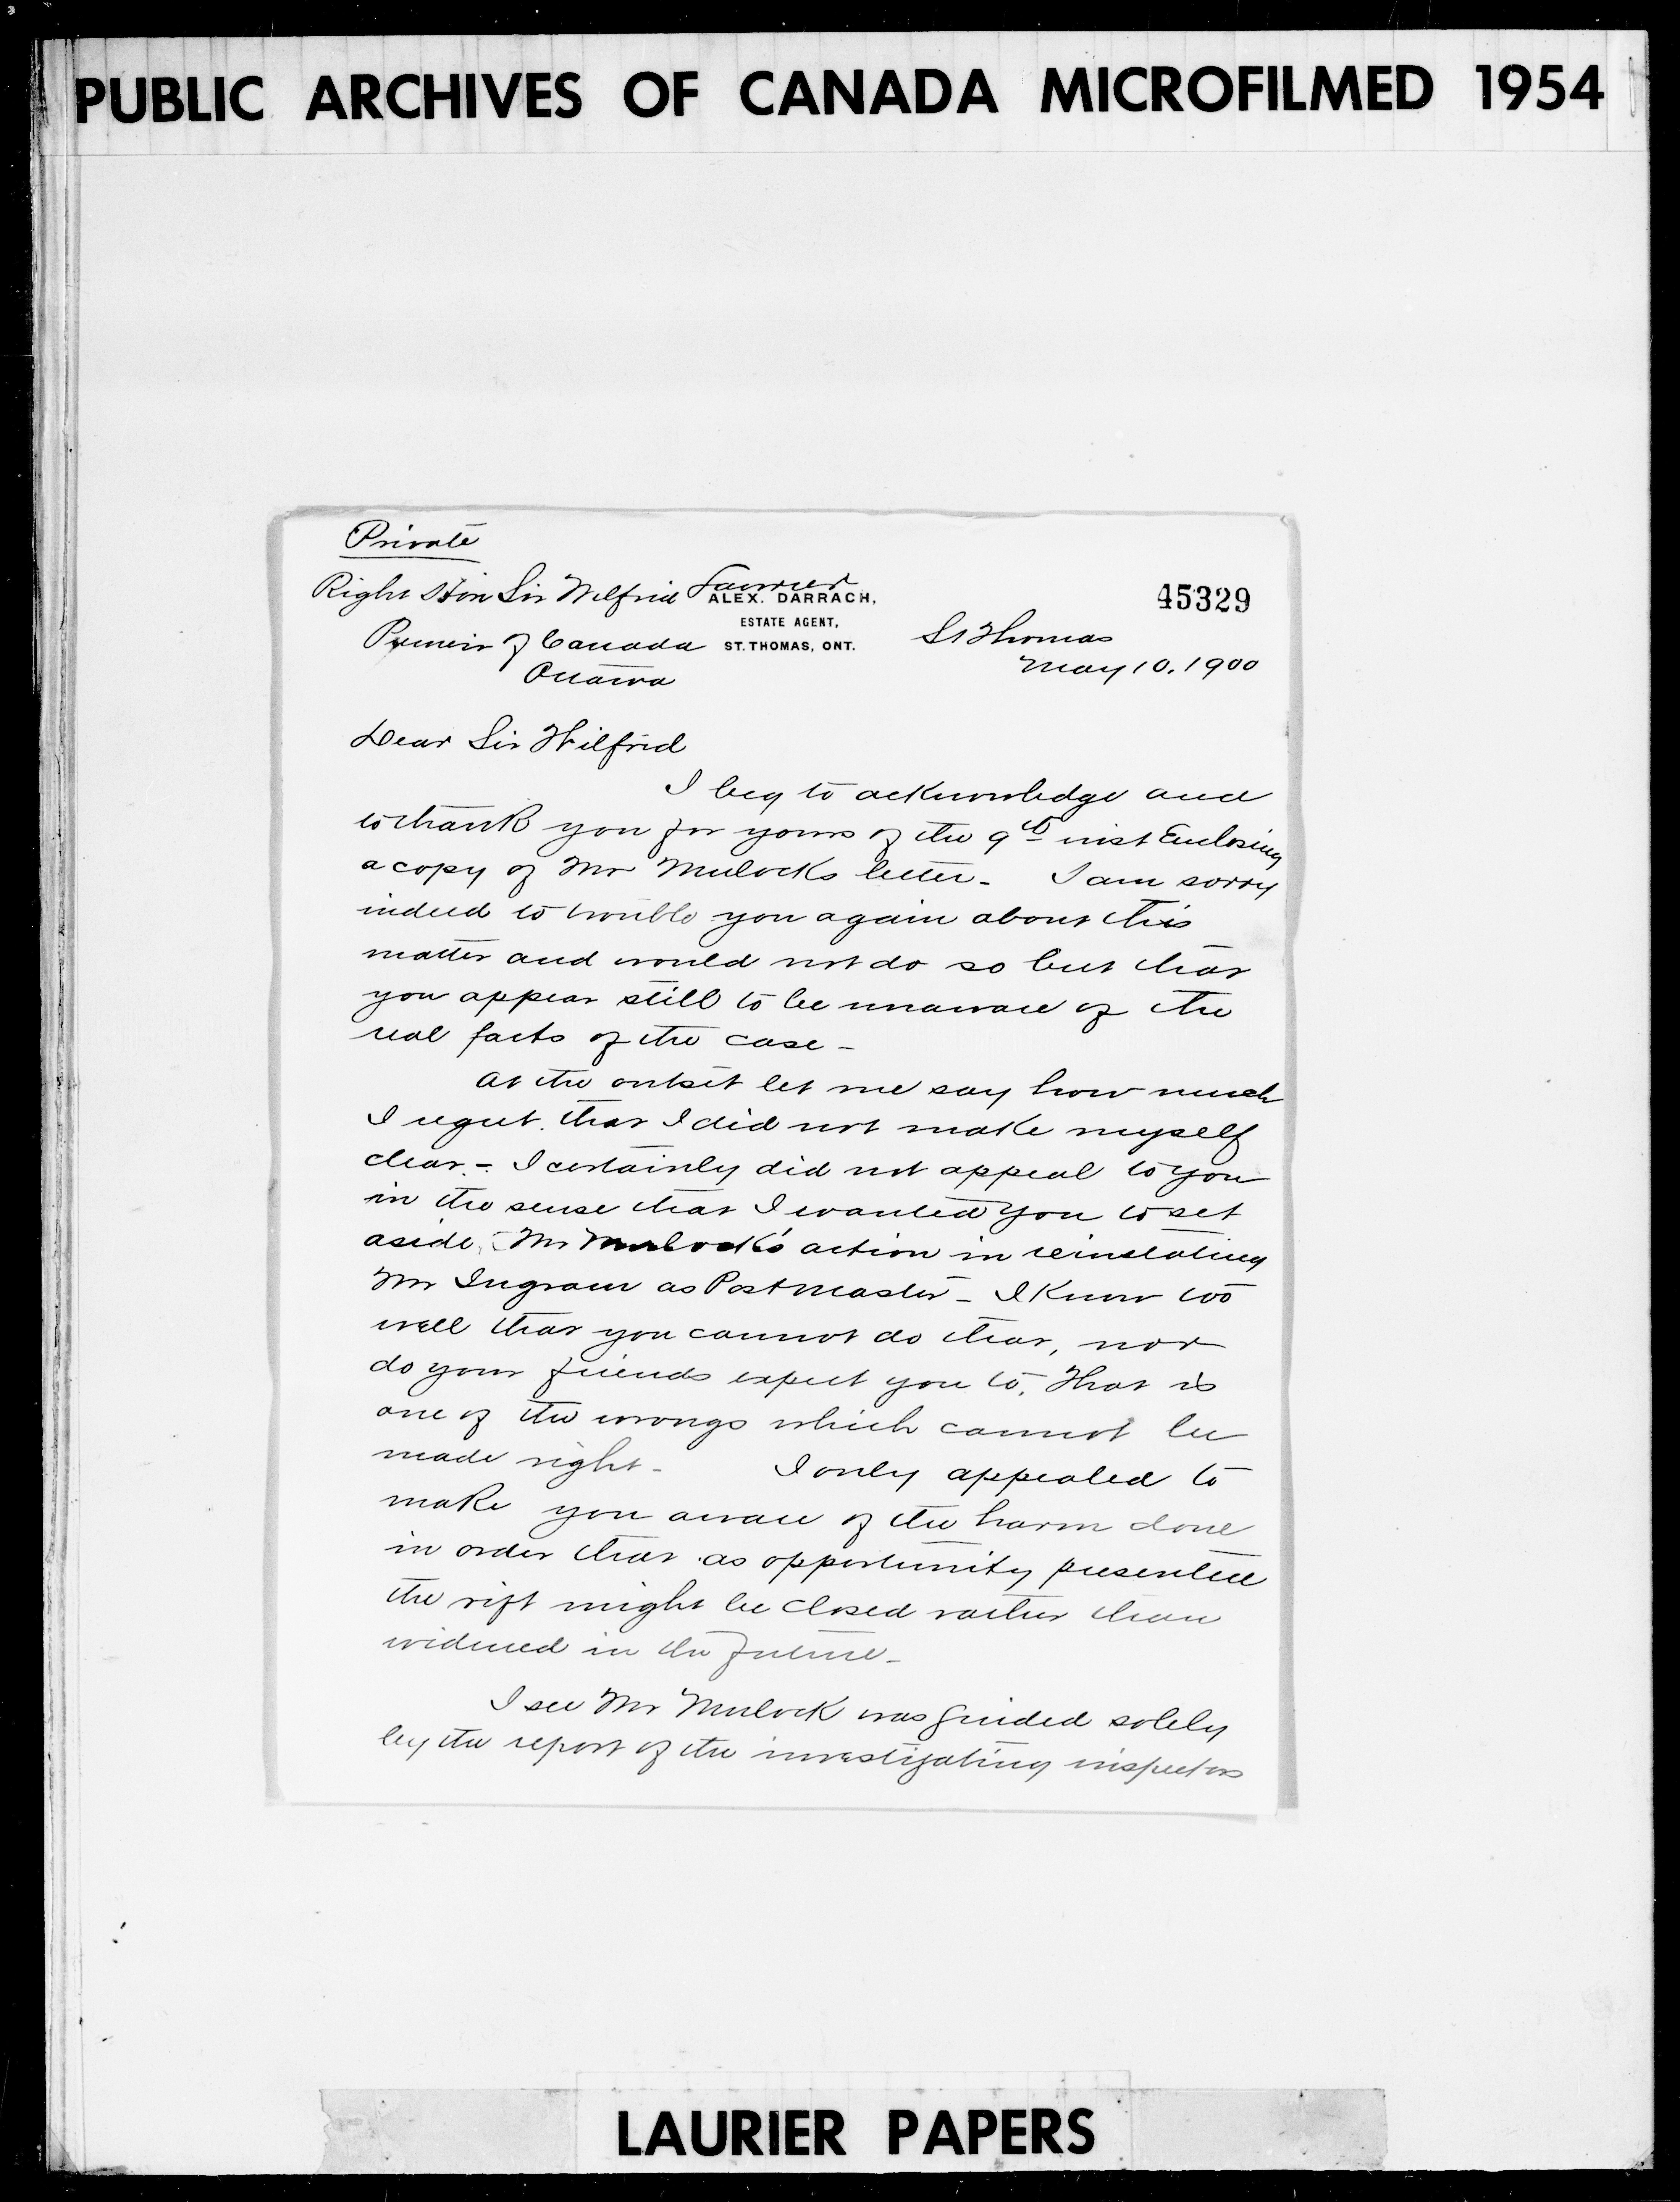 PUBLIC ARCHIVES OF CANADA MICROFILMED 1954
Private
Right Hon Sir Wilfrid Laurier
ALEX. DARRACH,
45329
ESTATE AGENT,
Premier of Canada ST. THOMAS, ONT. St Thomas
Ottawa May 10. 1900
Dear Sir Wilfrid
I beg to acknowledge and
to thank you for yours of the 9th inst Enclosing
a copy of Mr Mulocks letter - I am sorry
indeed to trouble you again about this
matter and would not do so but that
you appear still to be unaware of the
real facts of the case -
At the outset let me say how much
I regret that I did not make myself
clear. - I certainly did not appeal to you
in the sense that I wanted you to set
aside Mr Mulock's action in reinstating
Mr Ingram as Postmaster - I Know too
well that you cannot do that, nor
do your friends expect you to. That is
one of the wrongs which cannot be
made right - I only appealed to
make you aware of the harm done
in order that as opportunity presented
the rift might be closed rather than
widened in the future -
I see Mr Mulock was guided solely
by the report of the investigating inspectors
LAURIER PAPERS